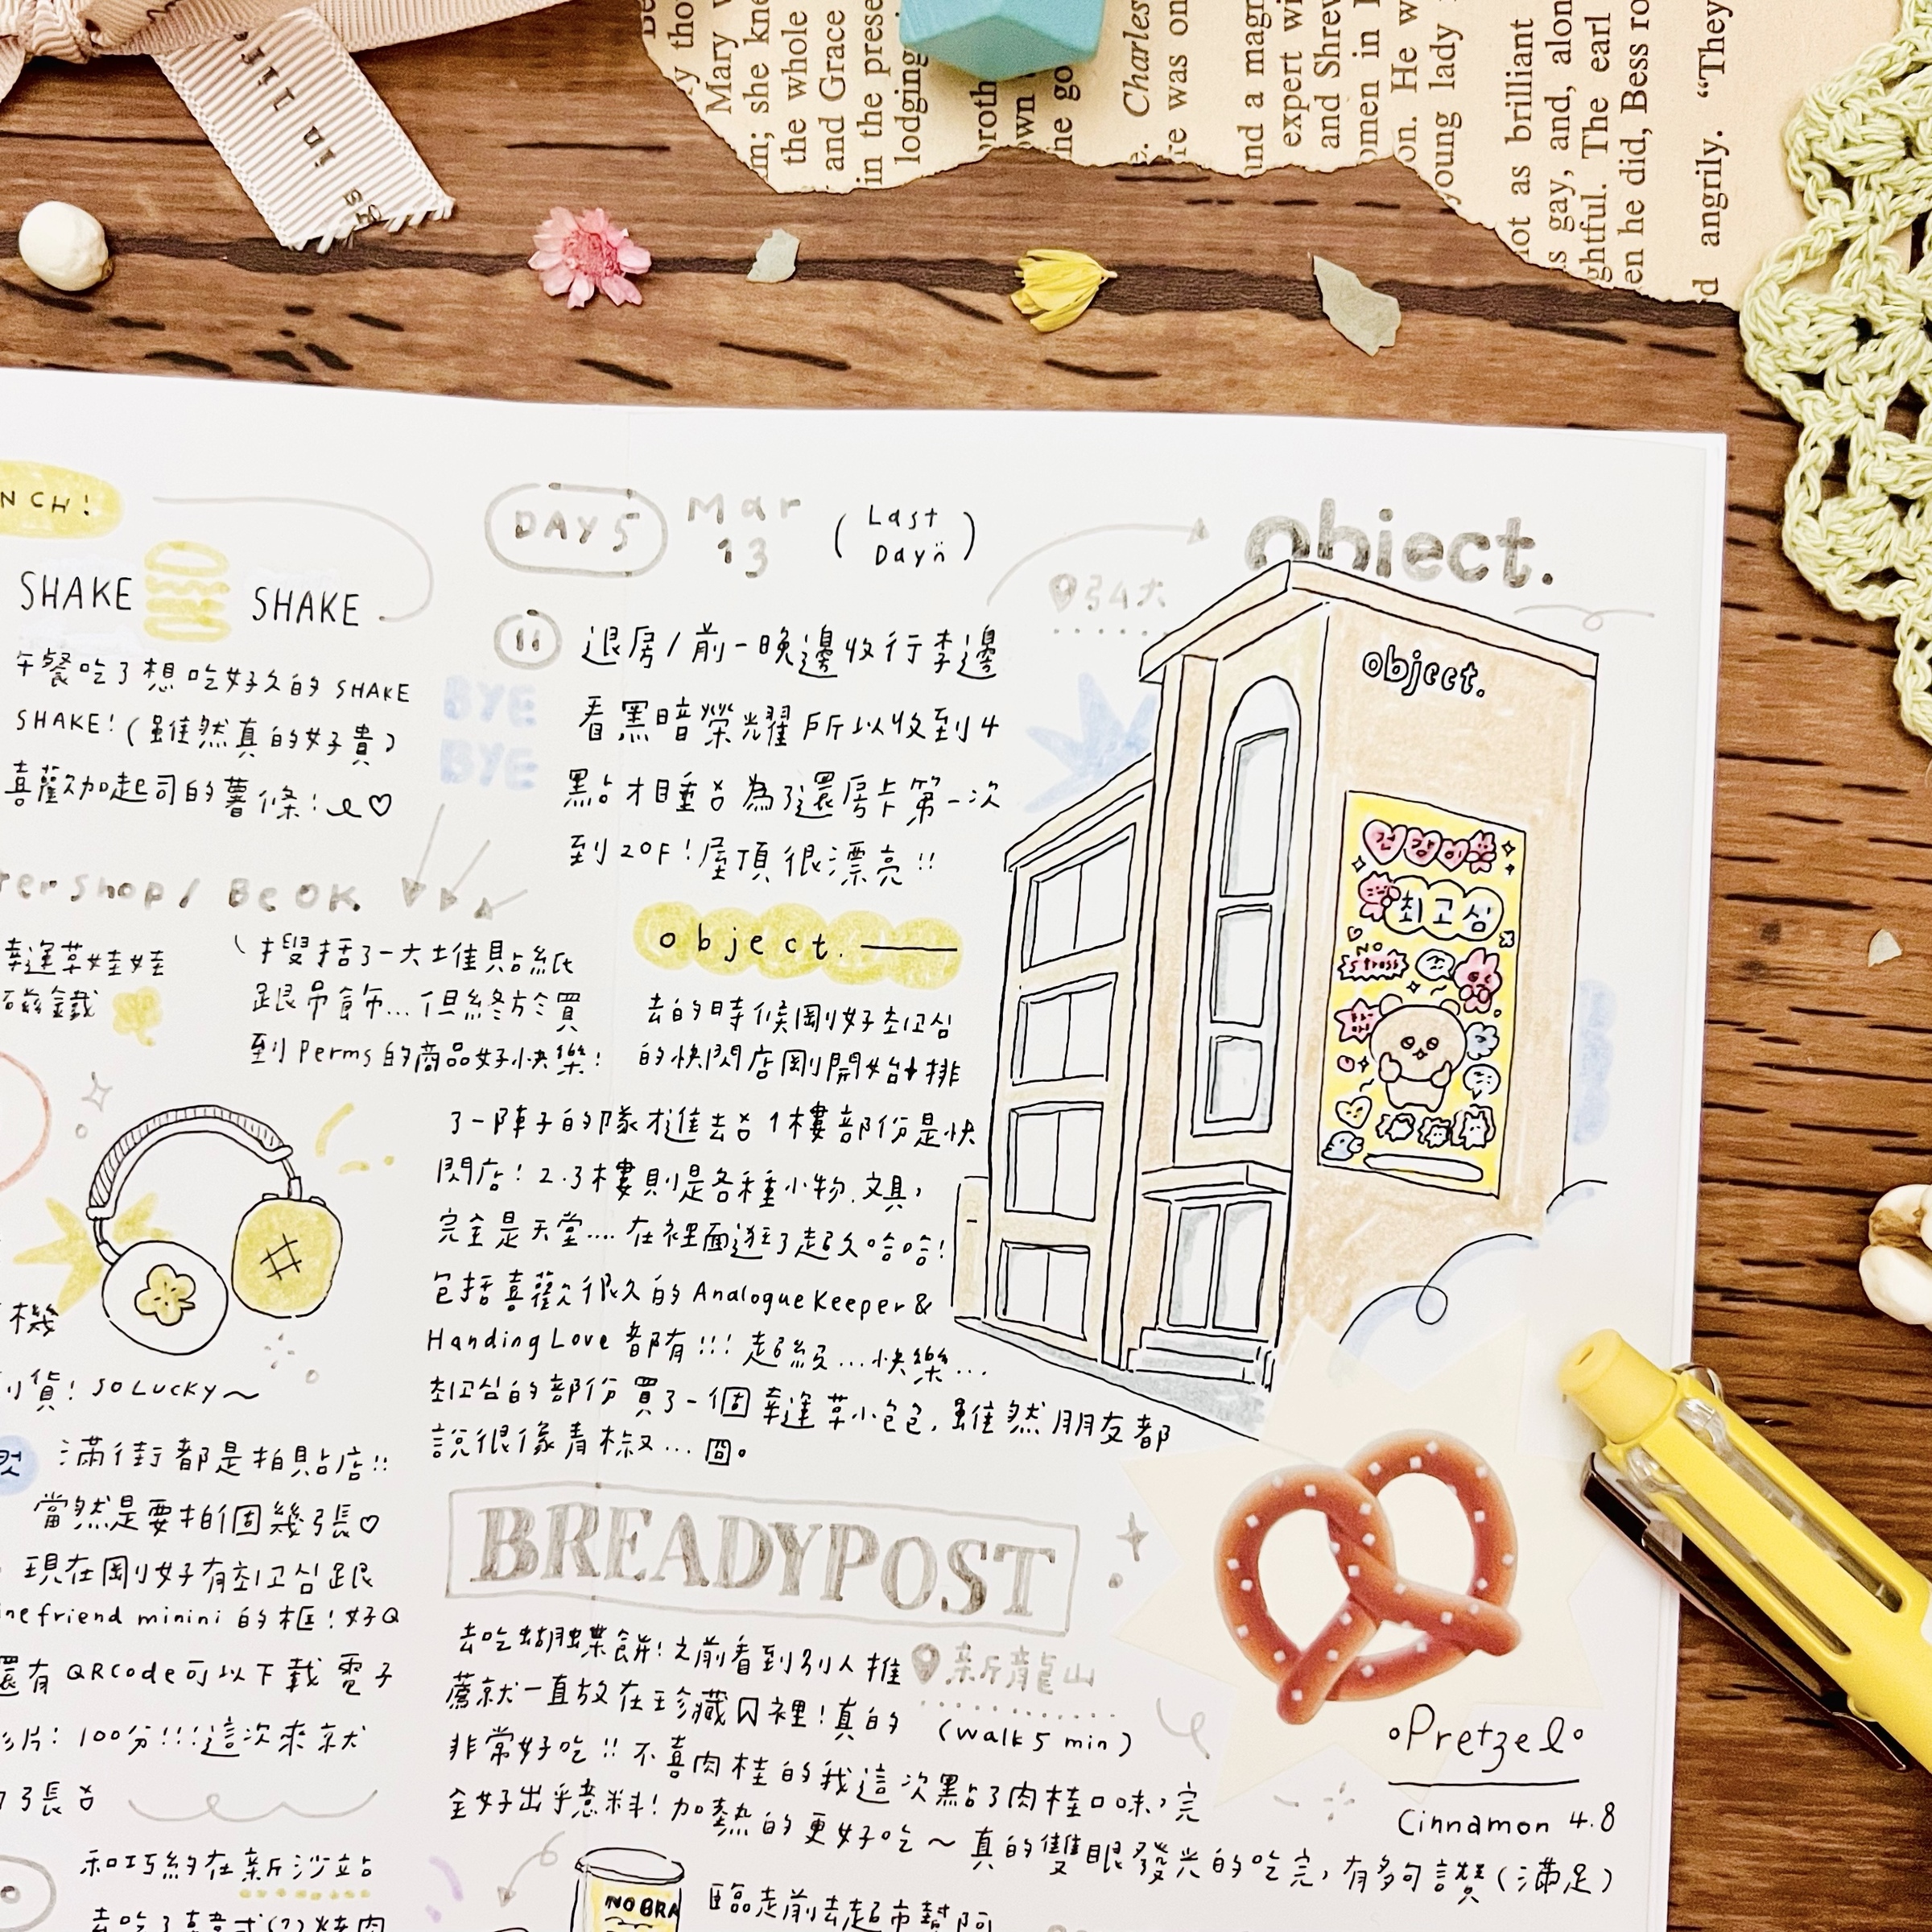 in life
Mary
the whole
and Grace
in the prese
lodging
Charles
re was on
and a magn
expert wi
and Shrew
omen in
on. He w
young lady
not as brilliant
s gay, and, alon
ghtful. The earl
en he did, Bess ro
angrily. “They
NCH!
SHAKE SHAKE
午餐吃了想吃好久的 SHAKE
SHAKE! (雖然真的好貴)
喜歡加起司的薯條!
BYE
BYE
shop / Be OK.
幸運草娃娃
磁鐵
搜括了一大堆貼紙
跟吊飾...但終於買
到 Perms 的商品好快樂!
機
貨! SO LUCKY~
滿街都是拍貼店!!
當然是要拍個幾張♡
現在剛好有최고심跟
inefriend minini 的框!好Q
還有 QRCode可以下載電子
影片: 100分!!!這次來就
了3張
和巧約在新沙站
DAY 5 Mar 13 (Last Day)
11
退房/前一晚邊收行李邊
看黑暗榮耀所以收到4
點才睡 為了還房卡第一次
到20F!屋頂很漂亮!!
object.
去的時候剛好최고심
的快閃店剛開始 排
了一陣子的隊才進去 1樓部份是快
閃店! 2.3樓則是各種小物.文具,
完全是天堂....在裡面逛了超久哈哈!
包括喜歡很久的 Analogue Keeper &
Handing Love 都有!!! 超級...快樂...
최고심的部份買了一個幸運草小包包,雖然朋友都
說很像青椒...囧。
object.
弘大
object.
건강이쁨
최고심
No
stress
BREADYPOST
去吃蝴蝶餅!之前看到別人推
薦就一直放在珍藏冊裡!真的
非常好吃!!不喜肉桂的我這次點了肉桂口味,完
全好出乎意料!加熱的更好吃~真的雙眼發光的吃完,有多句讚(滿足)
新龍山
(walk 5 min)
Pretzel
Cinnamon 4.8
NO BRA
臨走前去超市幫阿